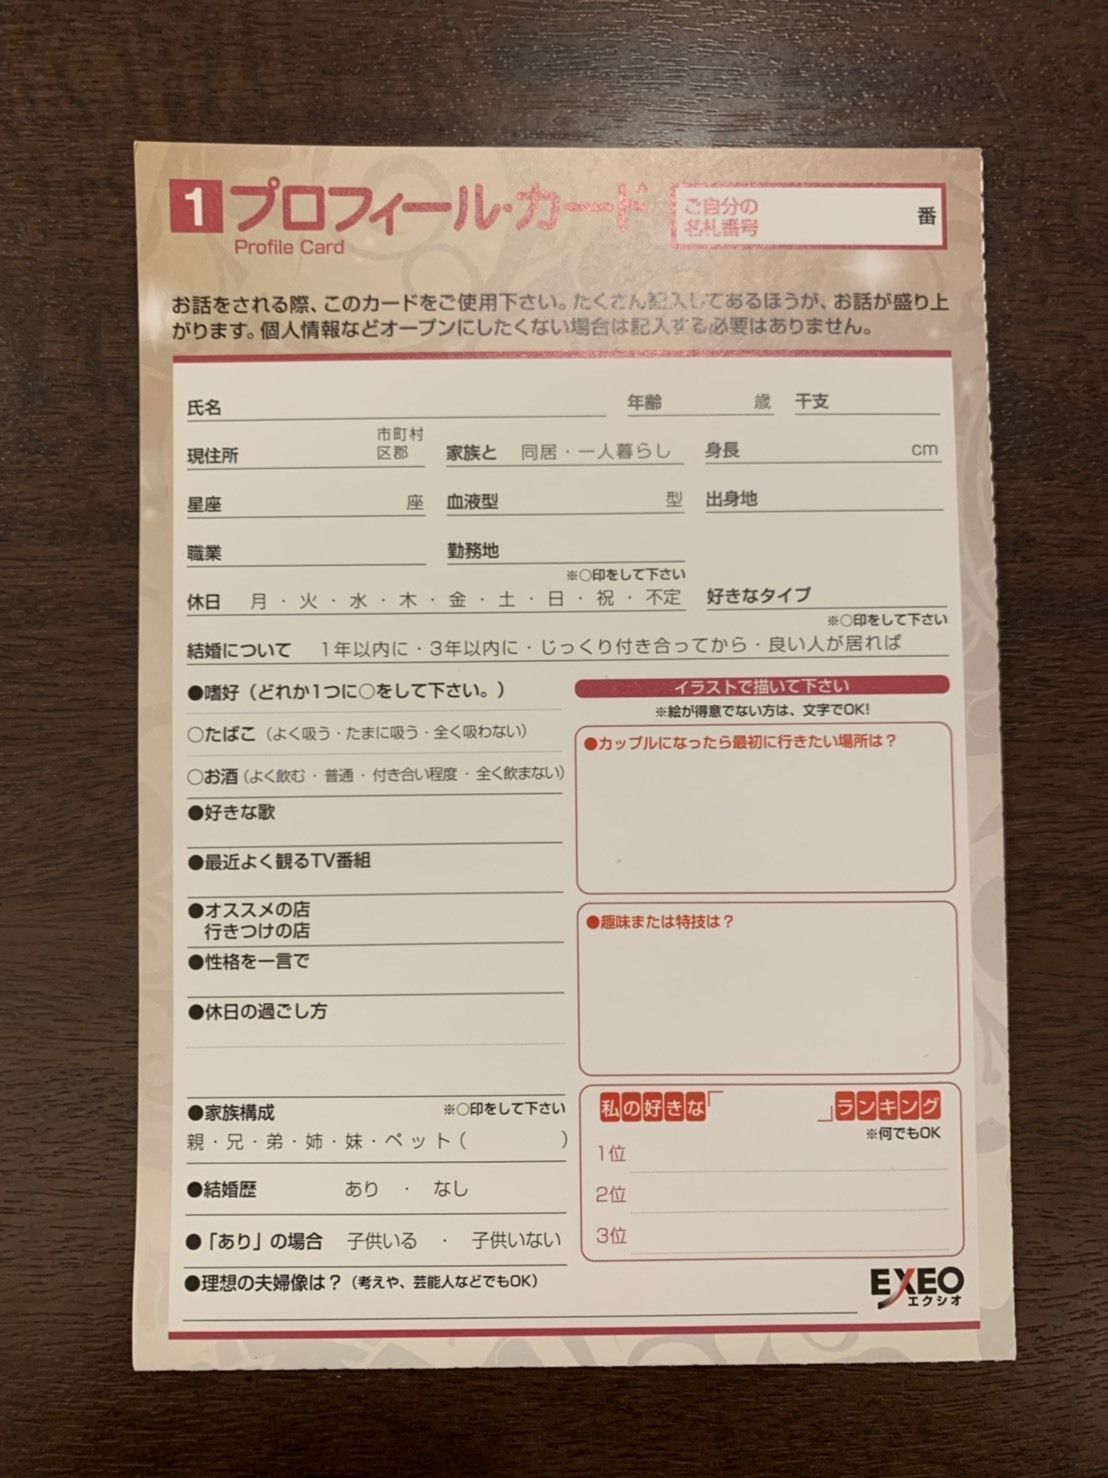 1 プロフィール・カード
Profile Card
ご自分の
名札番号
番
お話をされる際、このカードをご使用下さい。たくさん記入してあるほうが、お話が盛り上
がります。個人情報などオープンにしたくない場合は記入する必要はありません。
氏名 年齢 歳 干支
現住所 市町村 区郡 家族と 同居・一人暮らし 身長 cm
星座 座 血液型 型 出身地
職業 勤務地
※○印をして下さい
休日 月・火・水・木・金・土・日・祝・不定 好きなタイプ
※○印をして下さい
結婚について 1年以内に・3年以内に・じっくり付き合ってから・良い人が居れば
●嗜好（どれか1つに○をして下さい。）
○たばこ（よく吸う・たまに吸う・全く吸わない）
○お酒（よく飲む・普通・付き合い程度・全く飲まない）
●好きな歌
●最近よく観るTV番組
●オススメの店
行きつけの店
●性格を一言で
●休日の過ごし方
●家族構成 ※○印をして下さい
親・兄・弟・姉・妹・ペット（ ）
●結婚歴 あり ・ なし
●「あり」の場合 子供いる ・ 子供いない
●理想の夫婦像は？（考えや、芸能人などでもOK）
イラストで描いて下さい
※絵が得意でない方は、文字でOK!
●カップルになったら最初に行きたい場所は？
●趣味または特技は？
私の好きな「 」ランキング
※何でもOK
1位
2位
3位
EXEO
エクシオ